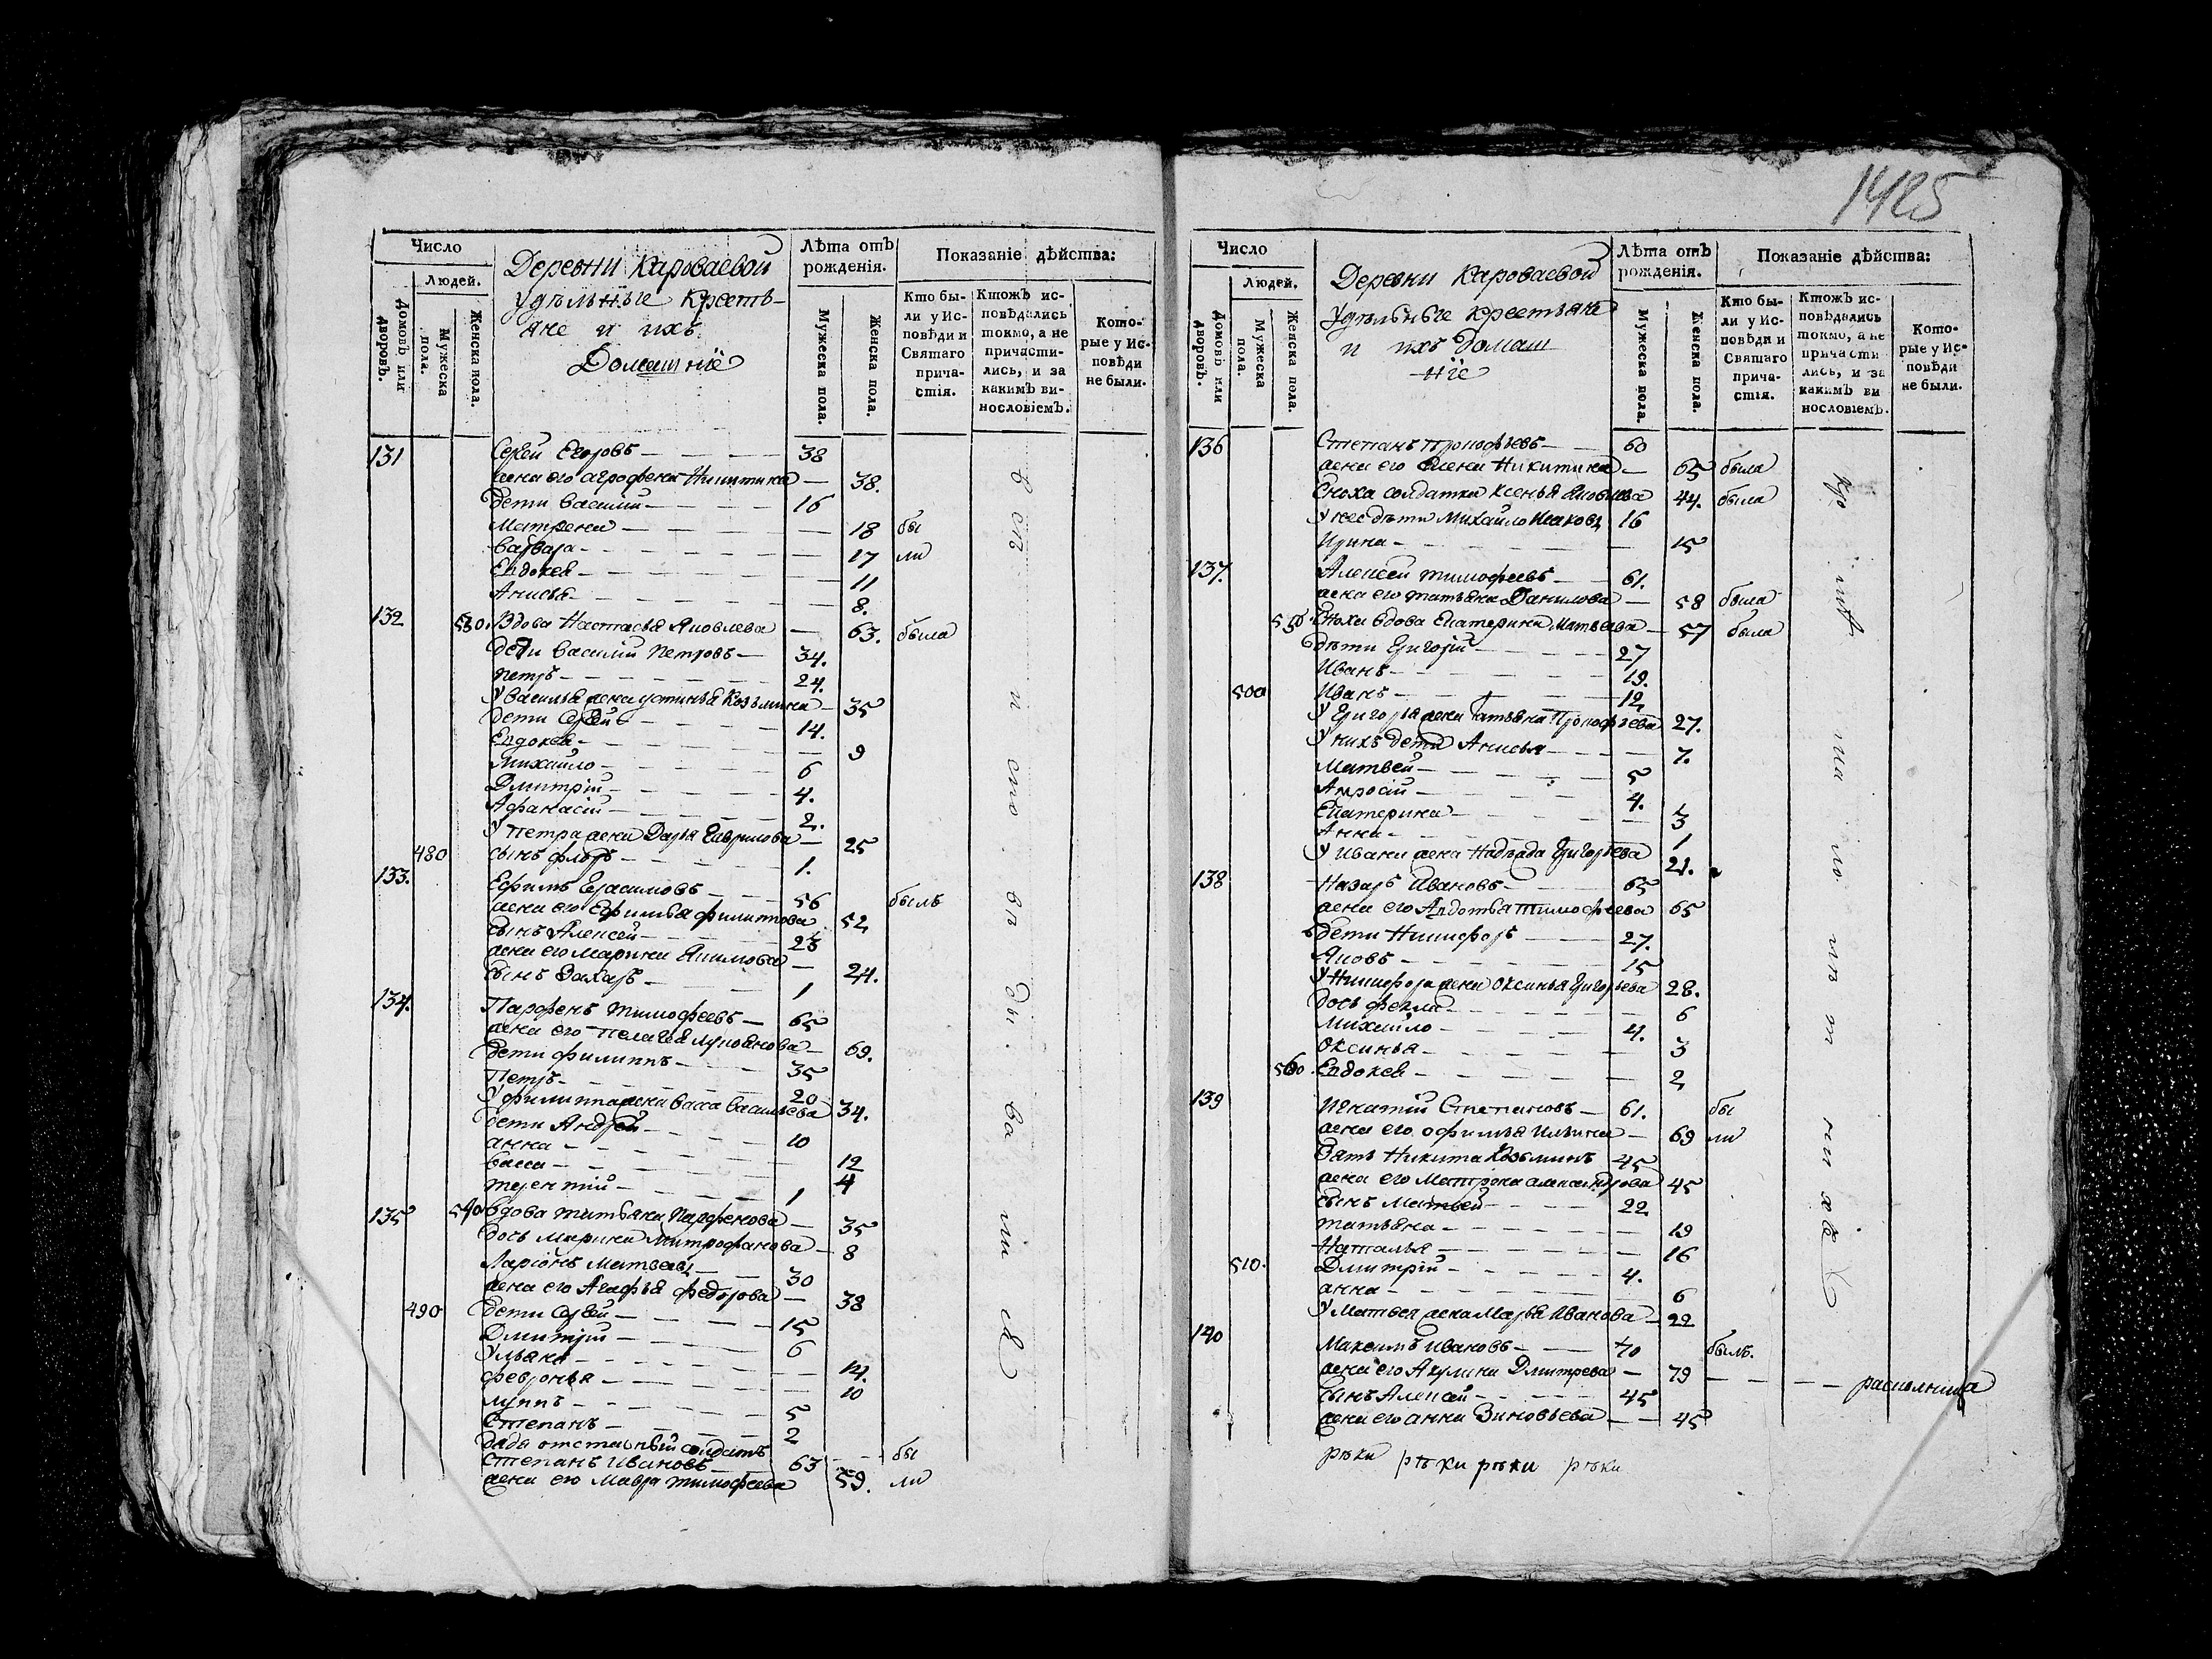 1425
Число
Людей.
Домовъ или дворовъ.
Мужеска пола.
Женска пола.
Деревни Караваевой
удѣльныге Крестья-
яне и ихъ
Домашніе
Лѣта отъ рожденія.
Мужеска пола.
Женска пола.
Показаніе дѣйства:
Кто бы-
ли у Ис-
повѣди и
Святаго
прича-
стія.
Ктожъ ис-
повѣдались
токмо, а не
причасти-
лись, и за
какимъ ви-
нословіемъ.
Кото-
рые у Ис-
повѣди
не были.
131 Сергей Егоровъ 38
жена его агрофена Никитина 38.
дети василій 16
Матрена 18 бы
варвара 17 ли
Евдокея 11
Анисья 8.
132 530. Вдова Настасья Яковлева 63. была
дети василій Петровъ 34.
петръ 24.
У василья жена устинья Козьмина 35
дети Сергей 14.
Евдокея 9
Михайло 6
Дмитрій 4.
Афанасій 2.
У Петра жена Дарья Гаврилова 25
480 сынъ флоръ 1.
133. Ефимъ Герасимовъ 56 былъ
жена его Ефимья филиппова 52
сынъ Алексей 23
жена его Марина Якимова 24.
сынъ Захаръ 1
134. Парфенъ тимофеевъ 65
жена его Пелагея Лукоянова 69.
дети филиппъ 35
Петръ 20
У филиппа жена васса васильева 34.
дети Андрей 10
анна 12
васса 4
терентій 1
135 540 вдова татьяна Парфенова 35
дочь Марина Митрофанова 8
Ларіонъ Матвеевъ 30
жена его Агафья федорова 38
490 дети Сергей 15
Дмитрій 6
Ульяна 14.
февронья 10
луппъ 5
Степанъ 2
дядя отставный солдатъ
Степанъ Ивановъ 63 бы
жена его Мавра тимофеева 59. ли
Число
Людей.
Домовъ или дворовъ.
Мужеска пола.
Женска пола.
Деревни Караваевой
Удѣльныге крестьяне
и ихъ домаш
ніе
Лѣта отъ рожденія.
Мужеска пола.
Женска пола.
Показаніе дѣйства:
Кто бы-
ли у Ис-
повѣди и
Святаго
прича-
стія.
Ктожъ ис-
повѣдались
токмо, а не
причасти
лись, и за
какимъ ви
нословіемъ.
Кото-
рые у Ис-
повѣди
не были.
136 Степанъ прокофьевъ 60
жена его Елена Никитина 65 была
Сноха солдатка Ксенья Яковлева 44. была
У нее дѣти Михайло Исаковъ 16
Ирина 15
137. Алексей тимофеевъ 61.
жена его татьяна Данилова 58 была
550. Сноха вдова Екатерина Матвеева 57 была
дѣти Григорій 27
Иванъ 19.
500 Иванъ 12
У Григорья жена татьяна Прокофьева 27.
У нихъ дети Анисья 7.
Матвей 5
Амросій 4.
Екатерина 3
Анна 1
У Ивана жена Надежда Григорьева 21.
138 Назаръ Ивановъ 65
жена его Авдотья тимофеева 65
дети Никифоръ 27.
Яковъ 15
У Никифора жена Оксинья Григорьева 28.
дочь фекла 6
Михайло 4.
Оксинья 3
560. Евдокея 2
139 Игнатій Степановъ 61. бы
жена его офимья Ильина 69 ли
Зять Никита Козьминъ 45
жена его Матрона александрова 45
сынъ Матвей 22.
татьяна 19
Наталья 16
510. Дмитрій 4.
анна 6
У Матвея жена Марья Иванова 22
140 Максимъ Ивановъ 70 былъ.
жена его Акулина Дмитрева 79 раскольница
сынъ Алексей 45
жена его анна Зиновьева 45
рѣки рѣки рѣки рѣки